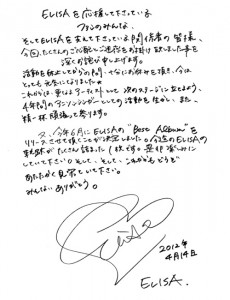 ELISAを応援して下さっている
ファンのみんな、
そしてELISAを支えて下さっている関係者の皆様、
今回、たくさんのご心配とご迷惑をお掛け致しました事を
深くお詫び申し上げます。
活動を休止してからの間、十分にお休みを頂き、今は
とっても元気になりました。
これからは、更にアーティストとして次のステージへ立てるよう、
4年間のアニソンシンガーとしての活動を活かし、また
精一杯頑張って参ります。
又、今年6月にELISAの"Best Album"を
リリースさせて頂くことが決定しました。今迄のELISAの
軌跡がたくさん詰まった1枚です。是非楽しみに
していて下さい。そして、そして、これからもどうぞ
あたたかく見守っていて下さい。
みんないありがとう。
Elisa
2012年
4月14日
ELISA.